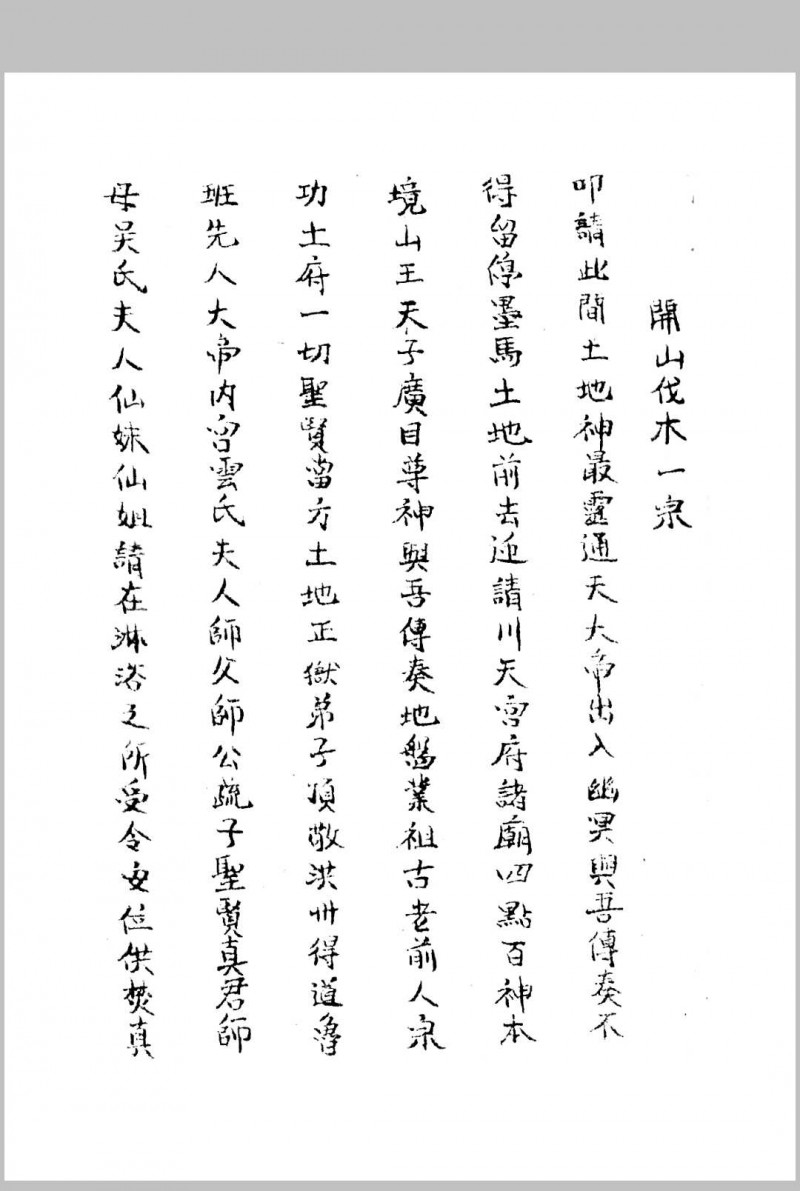 開山伐木一宗
叩請此間土地神最靈通天大帝出入幽冥與吾傳奏不
得留停墨馬土地前去迎請川天宮府諸廟四點百神本
境山王天子廣目尊神與吾傳奏地盤業祖古老前人宗
功土府一切聖賢當方土地正獄弟子頂敬洪州得道魯
班先人大帝內宮雲氏夫人師父師公疏子聖賢真君師
母吴氏夫人仙妹仙姐請在淋浴之所受令安位供焚真